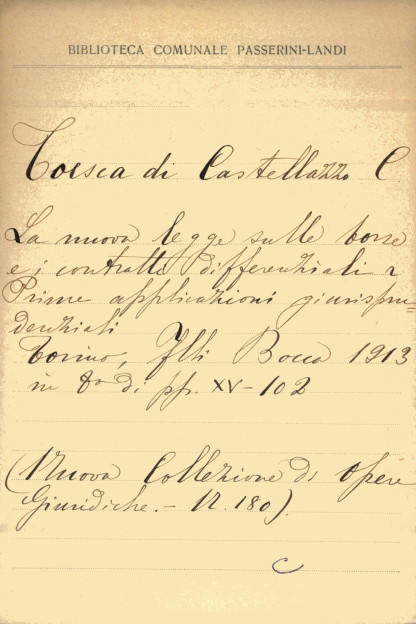 BIBLIOTECA COMUNALE PASSERINI-LANDI
Toesca di Castellazzo C
La nuova legge sulle borse
e i contratti differenziali -
Prime applicazioni giurispru=
denziali
Torino, Flli Bocca 1913
in 8° di pp. XV-102
(Nuova Collezione di opere
Giuridiche. - N. 180).
C